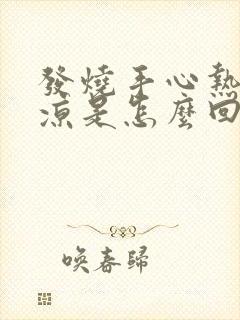 發燒手心熱
涼是怎麼回
喚春歸